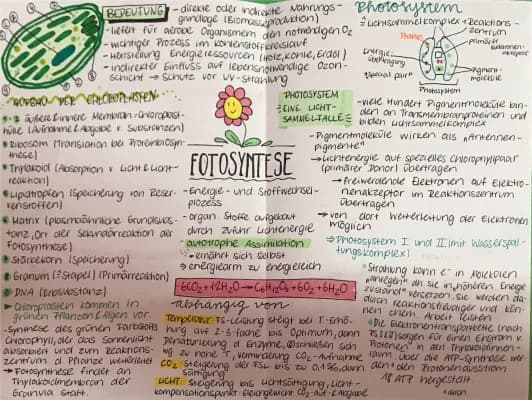 BEDEUTUNG
- direkte oder indirekte Nahrungs-
grundlage (Biomasseproduktion)
- liefert für aerobe Organismen den notwendigen O₂
- wichtiger Prozess im Kohlenstoffkreislauf
- Herstellung Energieressourcen (Holz, Kohle, Erdöl)
- indirekter Einfluss auf lebensnotwendige Ozon-
schicht → Schutz vor UV-Strahlung
Photosystem
Lichtsammelkomplex + Reaktions-
zentrum
Photon
primärer
Energie-
übertragung
"special pair"
Pigment-
moleküle
Photosystem
AUFBAU DER CHLOROPLASTEN
äußere & innere Membran-Chloroplast-
hülle (Aufnahme & Abgabe v. Substanzen)
Ribosom (Translation bei Proteinbiosyn-
these)
Thylakoid (Absorption v. Licht & Licht-
reaktion)
Lipidtropfen (Speicherung von Reser-
venstoffen)
Matrix (plasmaähnliche Grundsubs-
tanz, Ort der Sekundärreaktion der
Fotosynthese)
Stärkekorn (Speicherung)
Granum (Stapel) (Primärreaktion)
DNA (Erbsubstanz)
Chloroplasten kommen in
grünen Pflanzen & Algen vor.
- Synthese des grünen Farbstoffs
Chlorophyll, der das Sonnenlicht
absorbiert und zum Reaktions-
zentrum d. Pflanze weiterleitet
→ Fotosynthese findet an
Thylakoidmembran der
Grana statt.
FOTOSYNTESE
- Energie- und Stoffwechsel-
prozess
- organ. Stoffe aufgebaut
durch zufuhr Lichtenergie
- autotrophe Assimilation
→ ernährt sich selbst
→ energiearm zu energiereich
6CO₂ + 12H₂O → C₆H₁₂O₆ + 6O₂ + 6H₂O
abhängig von
Temperatur: FS-Leistung steigt bei T-Erhö-
hung auf 2-3-fache bis Optimum, dann
Denaturierung d. Enzyme, schließen sich
zu hohe T, Verminderung CO₂-Aufnahme
CO₂: Steigerung der FSL bis zu 0,1%, dann
Sättigung
LICHT: Steigerung bis Lichtsättigung, Licht-
kompensationspunkt
PHOTOSYSTEM
EINE LICHT-
SAMMELFALLE
- viele Hundert Pigmentmoleküle bin-
den an Transmembranproteinen und
bilden Lichtsammelkomplex
- Pigmentmoleküle wirken als "Antennen-
pigmente"
→ Lichtenergie auf spezielles Chlorophyllpaar
(primärer Donor) übertragen
→ freiwerdende Elektronen auf Elektro-
nenakzeptor im Reaktionszentrum
übertragen
→ von dort Weiterleitung der Elektronen
möglich
⇒ Photosystem I und II (mit Wasserspal-
tungskomplex)
Strahlung kann e⁻ in Molekülen
"anregen" an sie in "höheren Energie
zustand" versetzen, sie werden da-
durch reaktionsfreudiger und kön-
nen chem. Arbeit leisten
Die Elektronentransportkette (nach
PS I & II) sorgen für einen Export v.
Protonen in den Thylakoidinnen-
raum. Über die ATP-Synthase wer-
den den Protonen
18 ATP hergestellt